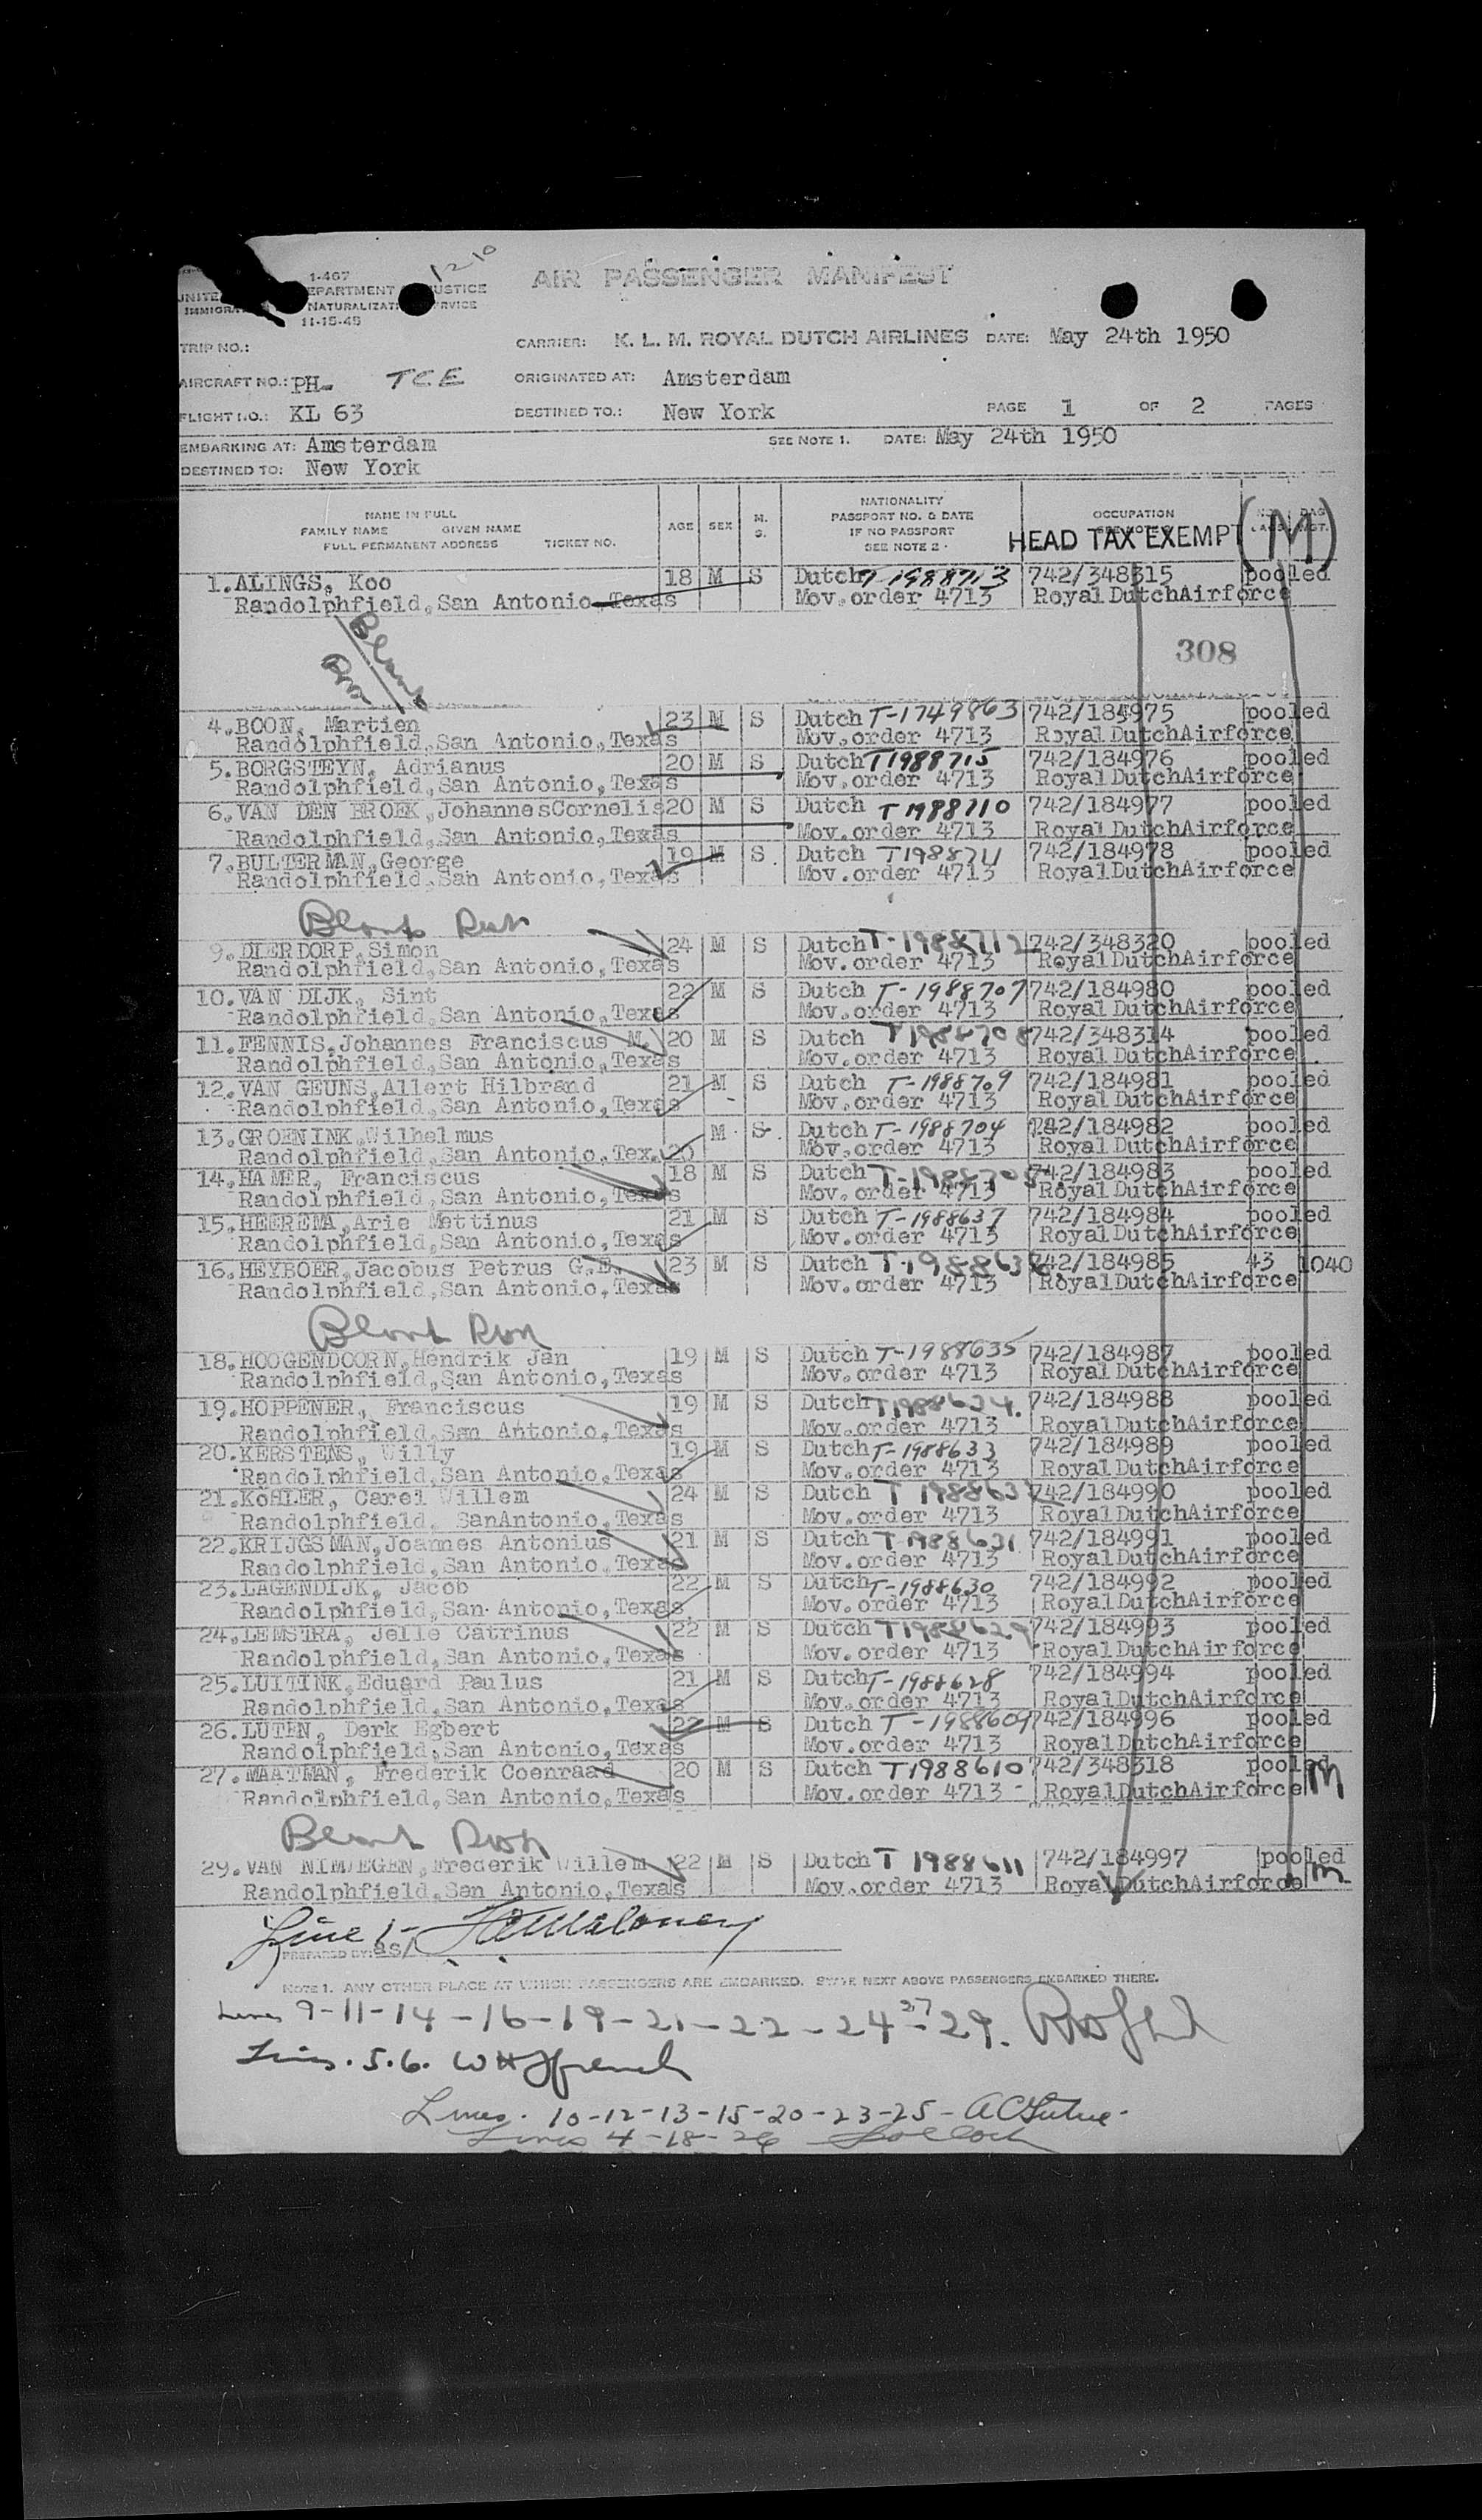 12 10
AIR PASSENGER MANIFEST
1-467
UNITE EPARTMENT USTICE
IMMIGRA NATURALIZAT RVICE
11-15-48
TRIP NO.:
CARRIER: K. L. M. ROYAL DUTCH AIRLINES DATE: May 24th 1950
AIRCRAFT NO.: PH- TCE ORIGINATED AT: Amsterdam
FLIGHT NO.: KL 63 DESTINED TO.: New York PAGE 1 OF 2 PAGES
EMBARKING AT: Amsterdam SEE NOTE 1. DATE: May 24th 1950
DESTINED TO: New York
NAME IN FULL
FAMILY NAME GIVEN NAME
FULL PERMANENT ADDRESS TICKET NO.
AGE SEX M. S.
NATIONALITY
PASSPORT NO. & DATE
IF NO PASSPORT
SEE NOTE 2
OCCUPATION
HEAD TAX EXEMPT (M)
1. ALINGS, Koo 18 M S Dutch T-1988713 742/348315 pooled
Randolphfield, San Antonio, Texas Mov.order 4713 RoyalDutchAirforce
308
Blank
4. BOON, Martien 23 M S Dutch T-1749863 742/184975 pooled
Randolphfield, San Antonio, Texas Mov.order 4713 RoyalDutchAirforce
5. BORGSTEYN, Adrianus 20 M S Dutch T1988715 742/184976 pooled
Randolphfield, San Antonio, Texas Mov.order 4713 RoyalDutchAirforce
6. VAN DEN BROEK, JohannesCornelis 20 M S Dutch T1988710 742/184977 pooled
Randolphfield, San Antonio, Texas Mov.order 4713 RoyalDutchAirforce
7. BULTERMAN, George 19 M S. Dutch T1988711 742/184978 pooled
Randolphfield, San Antonio, Texas Mov.order 4713 RoyalDutchAirforce
Blank
9. DIERDORP, Simon 24 M S Dutch T-1988712 742/348320 pooled
Randolphfield, San Antonio, Texas Mov.order 4713 RoyalDutchAirforce
10. VAN DIJK, Sint 22 M S Dutch T-1988707 742/184980 pooled
Randolphfield, San Antonio, Texas Mov.order 4713 RoyalDutchAirforce
11. FENNIS, Johannes Franciscus M. 20 M S Dutch T1988708 742/348314 pooled
Randolphfield, San Antonio, Texas Mov.order 4713 RoyalDutchAirforce
12. VAN GEUNS, Allert Hilbrand 21 M S Dutch T-1988709 742/184981 pooled
Randolphfield, San Antonio, Texas Mov.order 4713 RoyalDutchAirforce
13. GROENINK, Wilhelmus M S. Dutch T-1988704 742/184982 pooled
Randolphfield, San Antonio, Tex. 20 Mov.order 4713 RoyalDutchAirforce
14. HAMER, Franciscus 18 M S Dutch T-1988705 742/184983 pooled
Randolphfield, San Antonio, Texas Mov.order 4713 RoyalDutchAirforce
15. HEEREMA, Arie Mettinus 21 M S Dutch T-1988637 742/184984 pooled
Randolphfield, San Antonio, Texas Mov.order 4713 RoyalDutchAirforce
16. HEYBOER, Jacobus Petrus G.E. 23 M S Dutch T-1988636 742/184985 43 1040
Randolphfield, San Antonio, Texas Mov.order 4713 RoyalDutchAirforce
Blank
18. HOOGENDOORN, Hendrik Jan 19 M S Dutch T-1988635 742/184987 pooled
Randolphfield, San Antonio, Texas Mov.order 4713 RoyalDutchAirforce
19. HOPPENER, Franciscus 19 M S Dutch T1988634. 742/184988 pooled
Randolphfield, San Antonio, Texas Mov.order 4713 RoyalDutchAirforce
20. KERSTENS, Willy 19 M S Dutch T-1988633 742/184989 pooled
Randolphfield, San Antonio, Texas Mov.order 4713 RoyalDutchAirforce
21. KöHLER, Carel Willem 24 M S Dutch T 1988632 742/184990 pooled
Randolphfield, SanAntonio, Texas Mov.order 4713 RoyalDutchAirforce
22. KRIJGSMAN, Joannes Antonius 21 M S Dutch T-1988631 742/184991 pooled
Randolphfield, San Antonio, Texas Mov.order 4713 RoyalDutchAirforce
23. LAGENDIJK, Jacob 22 M S Dutch T-1988630 742/184992 pooled
Randolphfield, San Antonio, Texas Mov.order 4713 RoyalDutchAirforce
24. LEMSTRA, Jelle Catrinus 22 M S Dutch T1988629 742/184993 pooled
Randolphfield, San Antonio, Texas Mov.order 4713 RoyalDutchAirforce
25. LUITINK, Eduard Paulus 21 M S Dutch T-1988628 742/184994 pooled
Randolphfield, San Antonio, Texas Mov.order 4713 RoyalDutchAirforce
26. LUTEN, Derk Egbert 22 M S Dutch T-1988609 742/184996 pooled
Randolphfield, San Antonio, Texas Mov.order 4713 RoyalDutchAirforce
27. MAATMAN, Frederik Coenraad 20 M S Dutch T1988610 742/348318 pooled
Randolphfield, San Antonio, Texas Mov.order 4713 RoyalDutchAirforce M
Blank
29. VAN NIMWEGEN, Frederik Willem 22 M S Dutch T 1988611 742/184997 pooled
Randolphfield, San Antonio, Texas Mov.order 4713 RoyalDutchAirforce m
Line 1-
PREPARED BY: as/
NOTE 1. ANY OTHER PLACE AT WHICH PASSENGERS ARE EMBARKED. STATE NEXT ABOVE PASSENGERS EMBARKED THERE.
Lines 9-11-14-16-19-21-22-24-27-29.
Lines. 5.6.
Lines. 10-12-13-15-20-23-25-
Lines 4-18-26